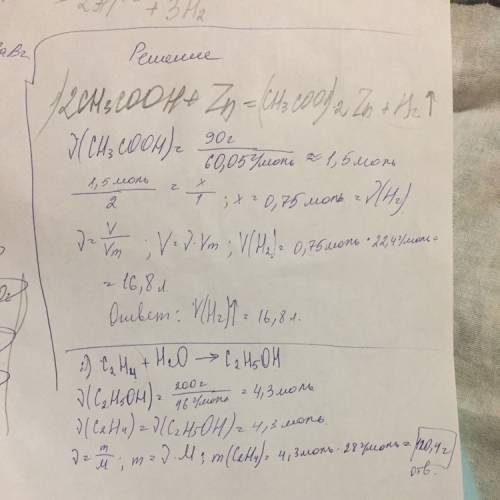 + 3H₂
Решение
1) 2CH₃COOH + Zn = (CH₃COO)₂Zn + H₂↑
ν(CH₃COOH) = 90г / 60,05г/моль ≈ 1,5моль
1,5моль / 2 = x / 1 ; x = 0,75моль = ν(H₂)
ν = V / Vm ; V = ν · Vm ; V(H₂) = 0,75моль · 22,4г/моль =
= 16,8 л.
Ответ: V(H₂)↑ = 16,8 л.
C₂H₄ + H₂O → C₂H₅OH
ν(C₂H₅OH) = 200г / 46г/моль = 4,3моль
ν(C₂H₄) = ν(C₂H₅OH) = 4,3моль.
ν = m / M ; m = ν · M ; m(C₂H₄) = 4,3моль · 28г/моль = 120,4г
отв.